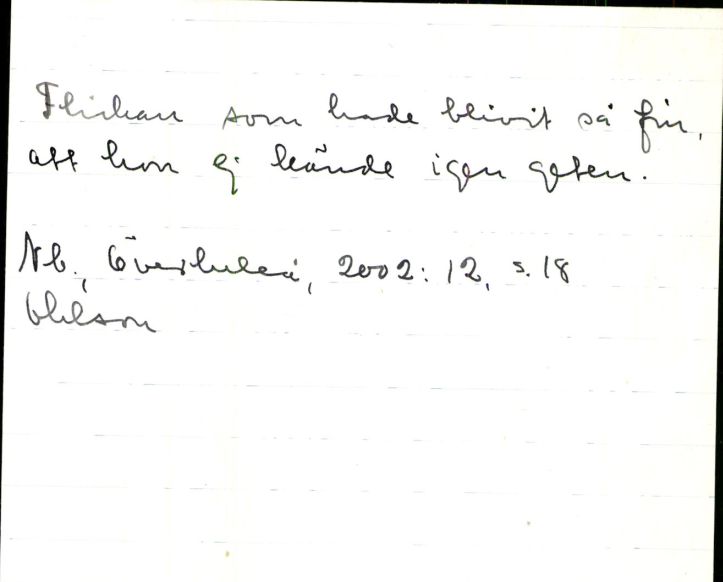 Flickan som hade blivit så fin,
att hon ej kände igen geten.
Nb., Överluleå, 2002:12, s. 18
Ohlson